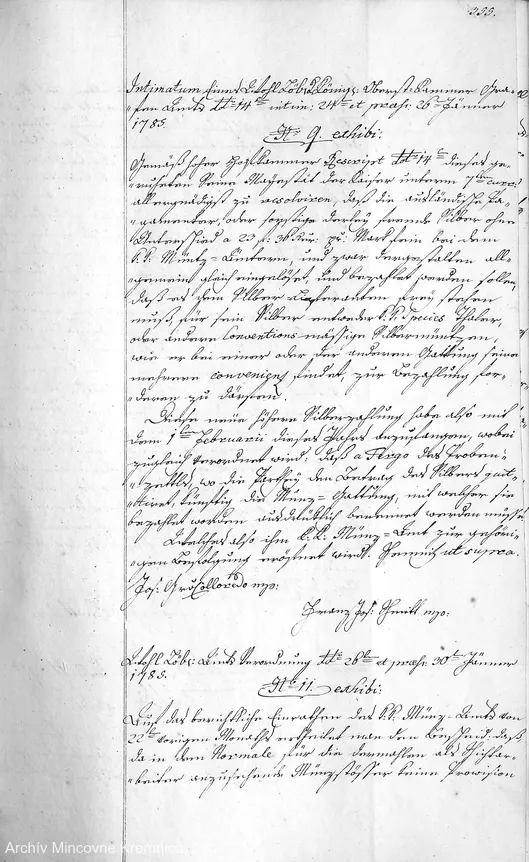 355.
Intimatum Eines Wohl Löb: K: Königl: Oberst-Kammer Gra-
-fen Amts ddto 14ten intim: 24ten et præs: 26ten Jänner
1785.
No 9 exhibi:
Gemäß hoher Hofkammer Rescript ddto 14ten dieses ge-
-ruheten Seine Mayestät der Kaiser unterm 7ten
allergnädigst zu resolviren, daß die ausländische Pa-
-gamenter, oder sonstige derley fremde Silber ohne
Unterschied a 23 f: 36 Kur: pr: Mark fein bei dem
K:K: Müntz-Ämtern, und zwar dergestalten all-
-gemein gleich eingelöset, und bezahlet werden sollen,
daß es dem Silber Lieferanten frey stehen
muß, für sein Silber entweder K:K: Species Thaler,
oder andere Conventions mässige Silbermüntzen,
wie er bei einer oder der anderen Gattung seine
mehrere convenienz findet, zur Bezahlung for-
-deren zu dörfen.
Diese neüe höhere Silberzahlung habe also mit
dem 1ten Februarii dieses Jahrs anzufangen, wobei
zugleich verordnet wird: daß a Tergo des Proben-
-zettls, wo die Parthey den Betrag des Silbers quit-
-tiret, künftig die Münz-Gattung, mit welcher sie
bezahlet worden ausdrüklich benennet werden müsse
Welches also ihm K:K: Münz-Amt zur gehöri-
-gen Befolgung eröfnet wird. Schemnitz ut supra.
Jos: Gr: v Colloredo mp:
Franz Jos: mp:
Wohl Löb: Amts Verordnung ddto 26ten et præs: 30ten Jänner
1785.
No 11. exhibi:
Auf das berichtliche Einrathen des K:K: Münz-Amts von
22ten vorigen Monaths ertheilet man den Bescheid, daß
da in dem Normale für die dermahlen als Schichtar-
-beiter anzusehende Münzstösser keine Provision
Archív Mincovne Kremnica